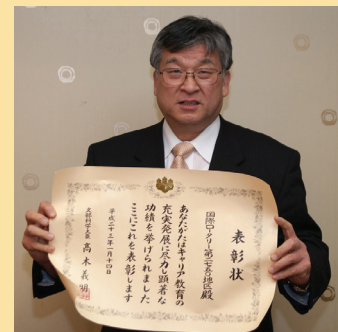 表彰状
国際ロータリー第二七五〇地区殿
あなたがたはキャリア教育の
充実発展に尽力し顕著な
功績を挙げられました
ここにこれを表彰します
平成二十三年一月十四日
文部科学大臣 髙木義明